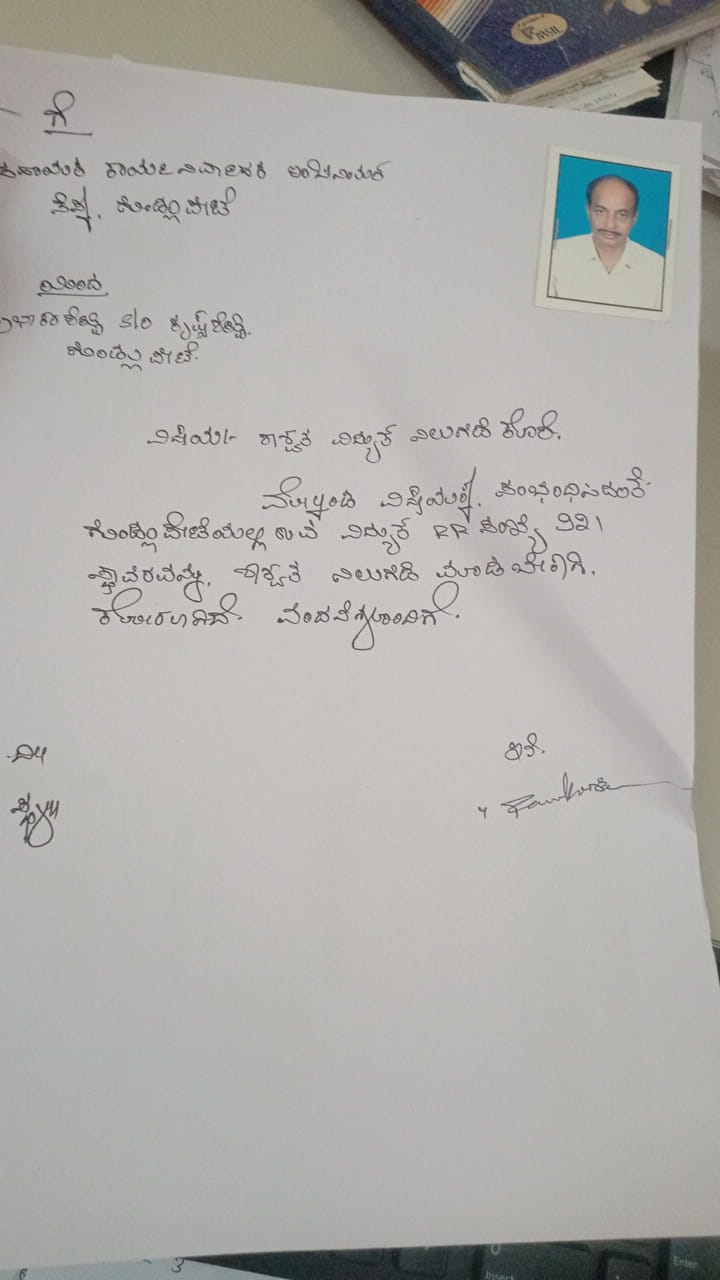 ಗೆ
ಸಹಾಯಕ ಕಾರ್ಯನಿರ್ವಾಹಕ ಅಭಿಯಂತರ
ಸೆಸ್ಕ, ಗುಂಡ್ಲುಪೇಟೆ
ಯಿಂದ
S/o ಕೃಷ್ಣಶೆಟ್ಟಿ.
ಗುಂಡ್ಲುಪೇಟೆ.
ವಿಷಯ:- ಶಾಶ್ವತ ವಿದ್ಯುತ್ ನಿಲುಗಡೆ ಕೋರಿ.
ಮೇಲ್ಕಂಡ ವಿಷಯಕ್ಕೆ ಸಂಭಂಧಿಸಿದಂತೆ
ಗುಂಡ್ಲುಪೇಟೆಯಲ್ಲಿ ಇರುವ ವಿದ್ಯುತ್ RR ಸಂಖ್ಯೆ 921
ಸ್ಥಾವರವನ್ನು, ಶಾಶ್ವತ ನಿಲುಗಡೆ ಮಾಡಬೇಕಾಗಿ.
ಕೋರಲಾಗಿದೆ. ವಂದನೆಗಳೊಂದಿಗೆ.
ಇತಿ.